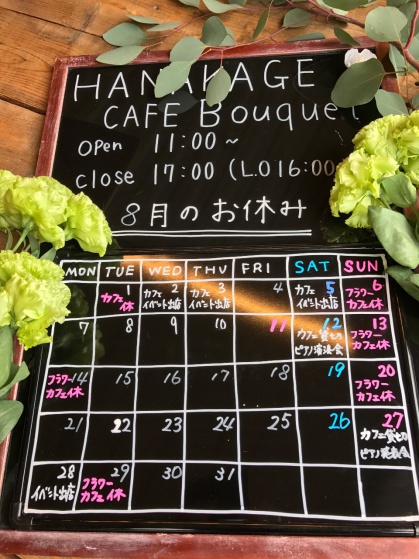 HANAKAGE
CAFE Bouquet
open 11:00~
close 17:00 (L.O16:00
8月のお休み
MON TUE WED THU FRI SAT SUN
1 カフェ休
2 カフェ イベント出店
3 カフェ イベント出店
4
5 カフェ イベント出店
6 フラワー カフェ休
7 8 9 10 11
12 カフェ貸切 ピアノ演奏会
13 フラワー カフェ休
14 フラワー カフェ休
15 16 17 18 19
20 フラワー カフェ休
21 22 23 24 25 26
27 カフェ貸切 ピアノ演奏会
28 イベント出店
29 フラワー カフェ休
30 31